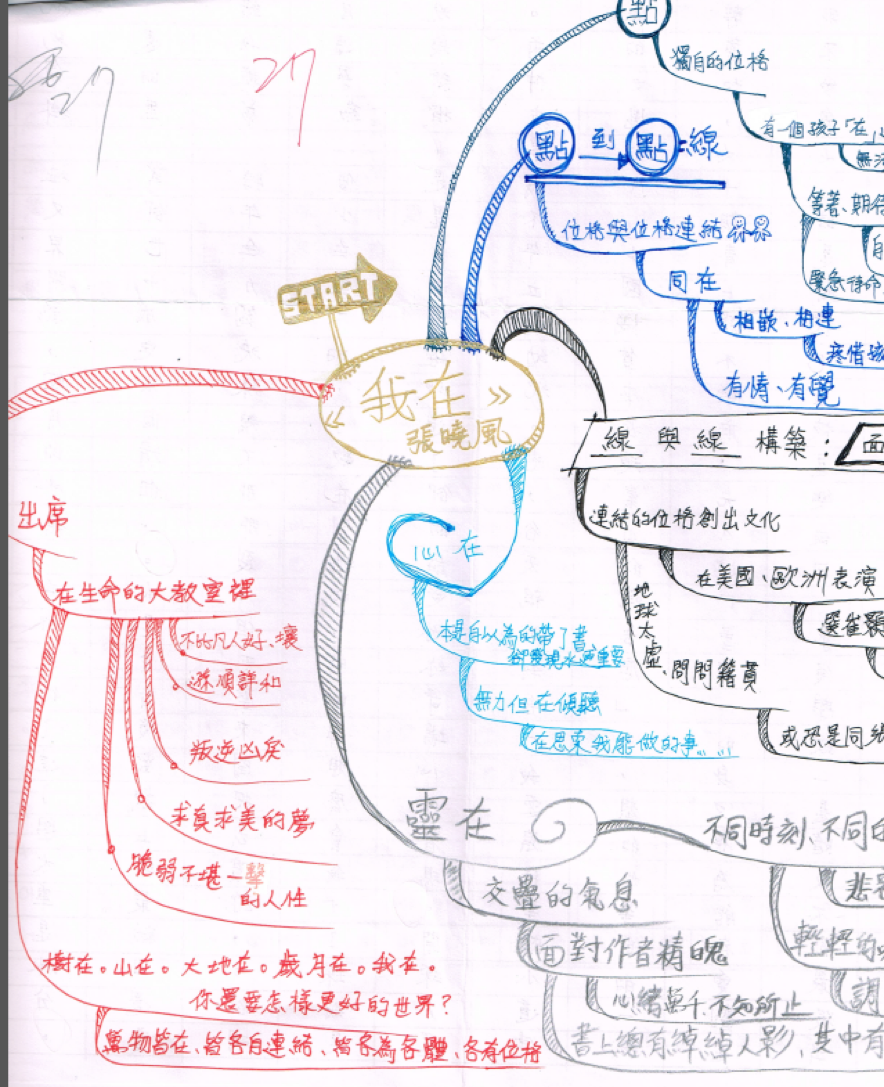 27
27
點
獨自的位格
有一個孩子「在」
等著、期待
緊急待命
點 到 點=線
位格與位格連結
同在
相嵌、相連
有情、有覺
START
《我在》
張曉風
線 與 線 構築：面
連結的位格創出文化
在美國、歐洲表演
地球太虛、問問籍貫
或恐是同
心 在
本是自以為的帶了書
卻發現水更重要
無力但在傾聽
在思索我能做的事……
出席
在生命的大教室裡
不的凡人好、壞
溫順詳和
叛逆凶戾
求真求美的夢
脆弱不堪一擊
的人性
樹在。山在。大地在。歲月在。我在。
你還要怎樣更好的世界？
萬物皆在、皆各自連結、皆各為各體、各有位格
靈在
不同時刻、不同
交疊的氣息
面對作者精魄
輕輕的
心緒萬千不知所止
書上總有綽綽人影、其中有